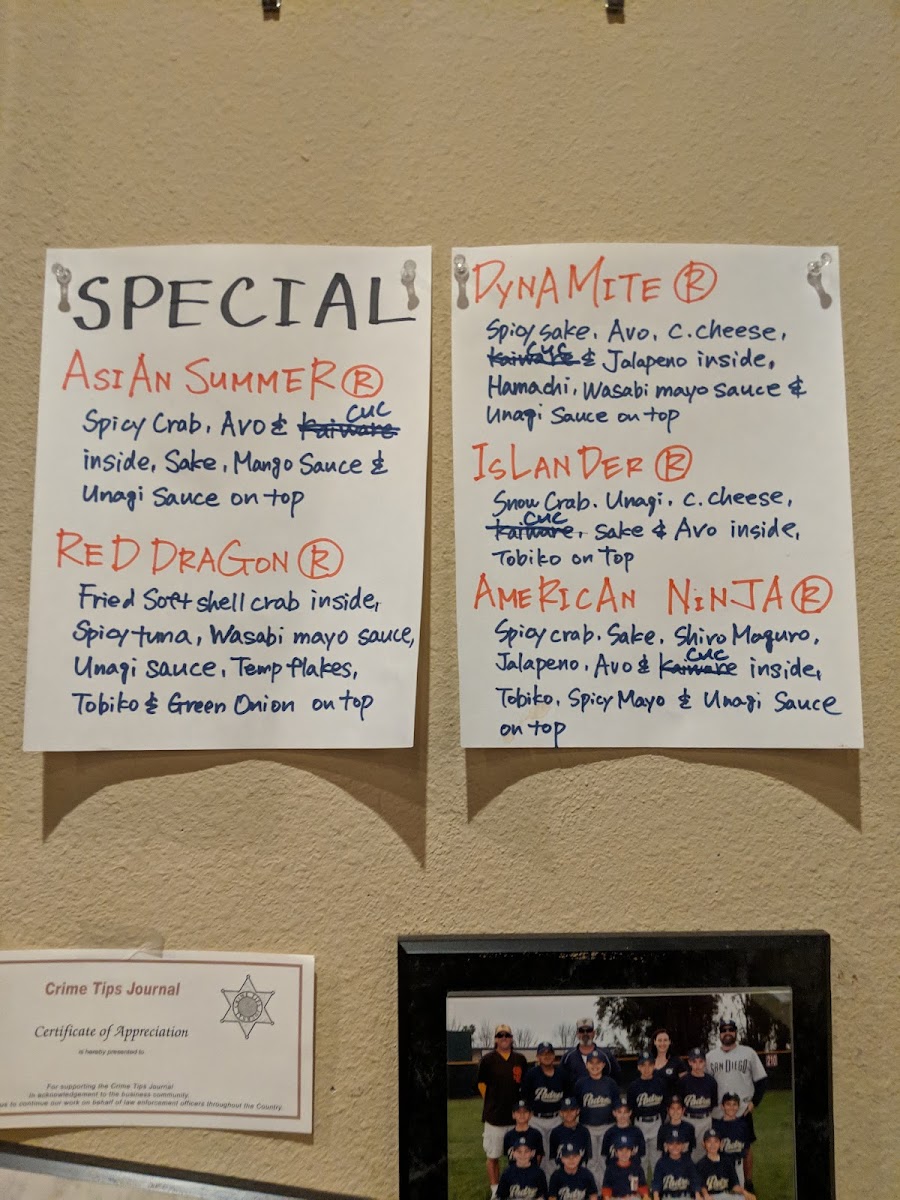 SPECIAL
ASIAN SUMMER Ⓡ
Spicy Crab, Avo & kaiware cuc
inside, Sake, Mango Sauce &
Unagi Sauce on top
RED DRAGON Ⓡ
Fried Soft shell crab inside,
Spicy tuna, Wasabi mayo sauce,
Unagi sauce, Temp flakes,
Tobiko & Green Onion on top
DYNAMITE Ⓡ
Spicy sake, Avo, C.cheese,
kaiware cuc & Jalapeno inside,
Hamachi, Wasabi mayo sauce &
Unagi Sauce on top
ISLANDER Ⓡ
Snow Crab, Unagi, C.cheese,
kaiware cuc, Sake & Avo inside,
Tobiko on top
AMERICAN NINJA Ⓡ
Spicy crab, Sake, Shiro Maguro,
Jalapeno, Avo & kaiware cuc inside,
Tobiko, Spicy Mayo & Unagi Sauce
on top
Crime Tips Journal
Certificate of Appreciation
is hereby presented to
For supporting the Crime Tips Journal
in acknowledgement to the business community,
us to continue our work on behalf of law enforcement officers throughout the Country.
SAN DIEGO
Padres
Padres
Padres